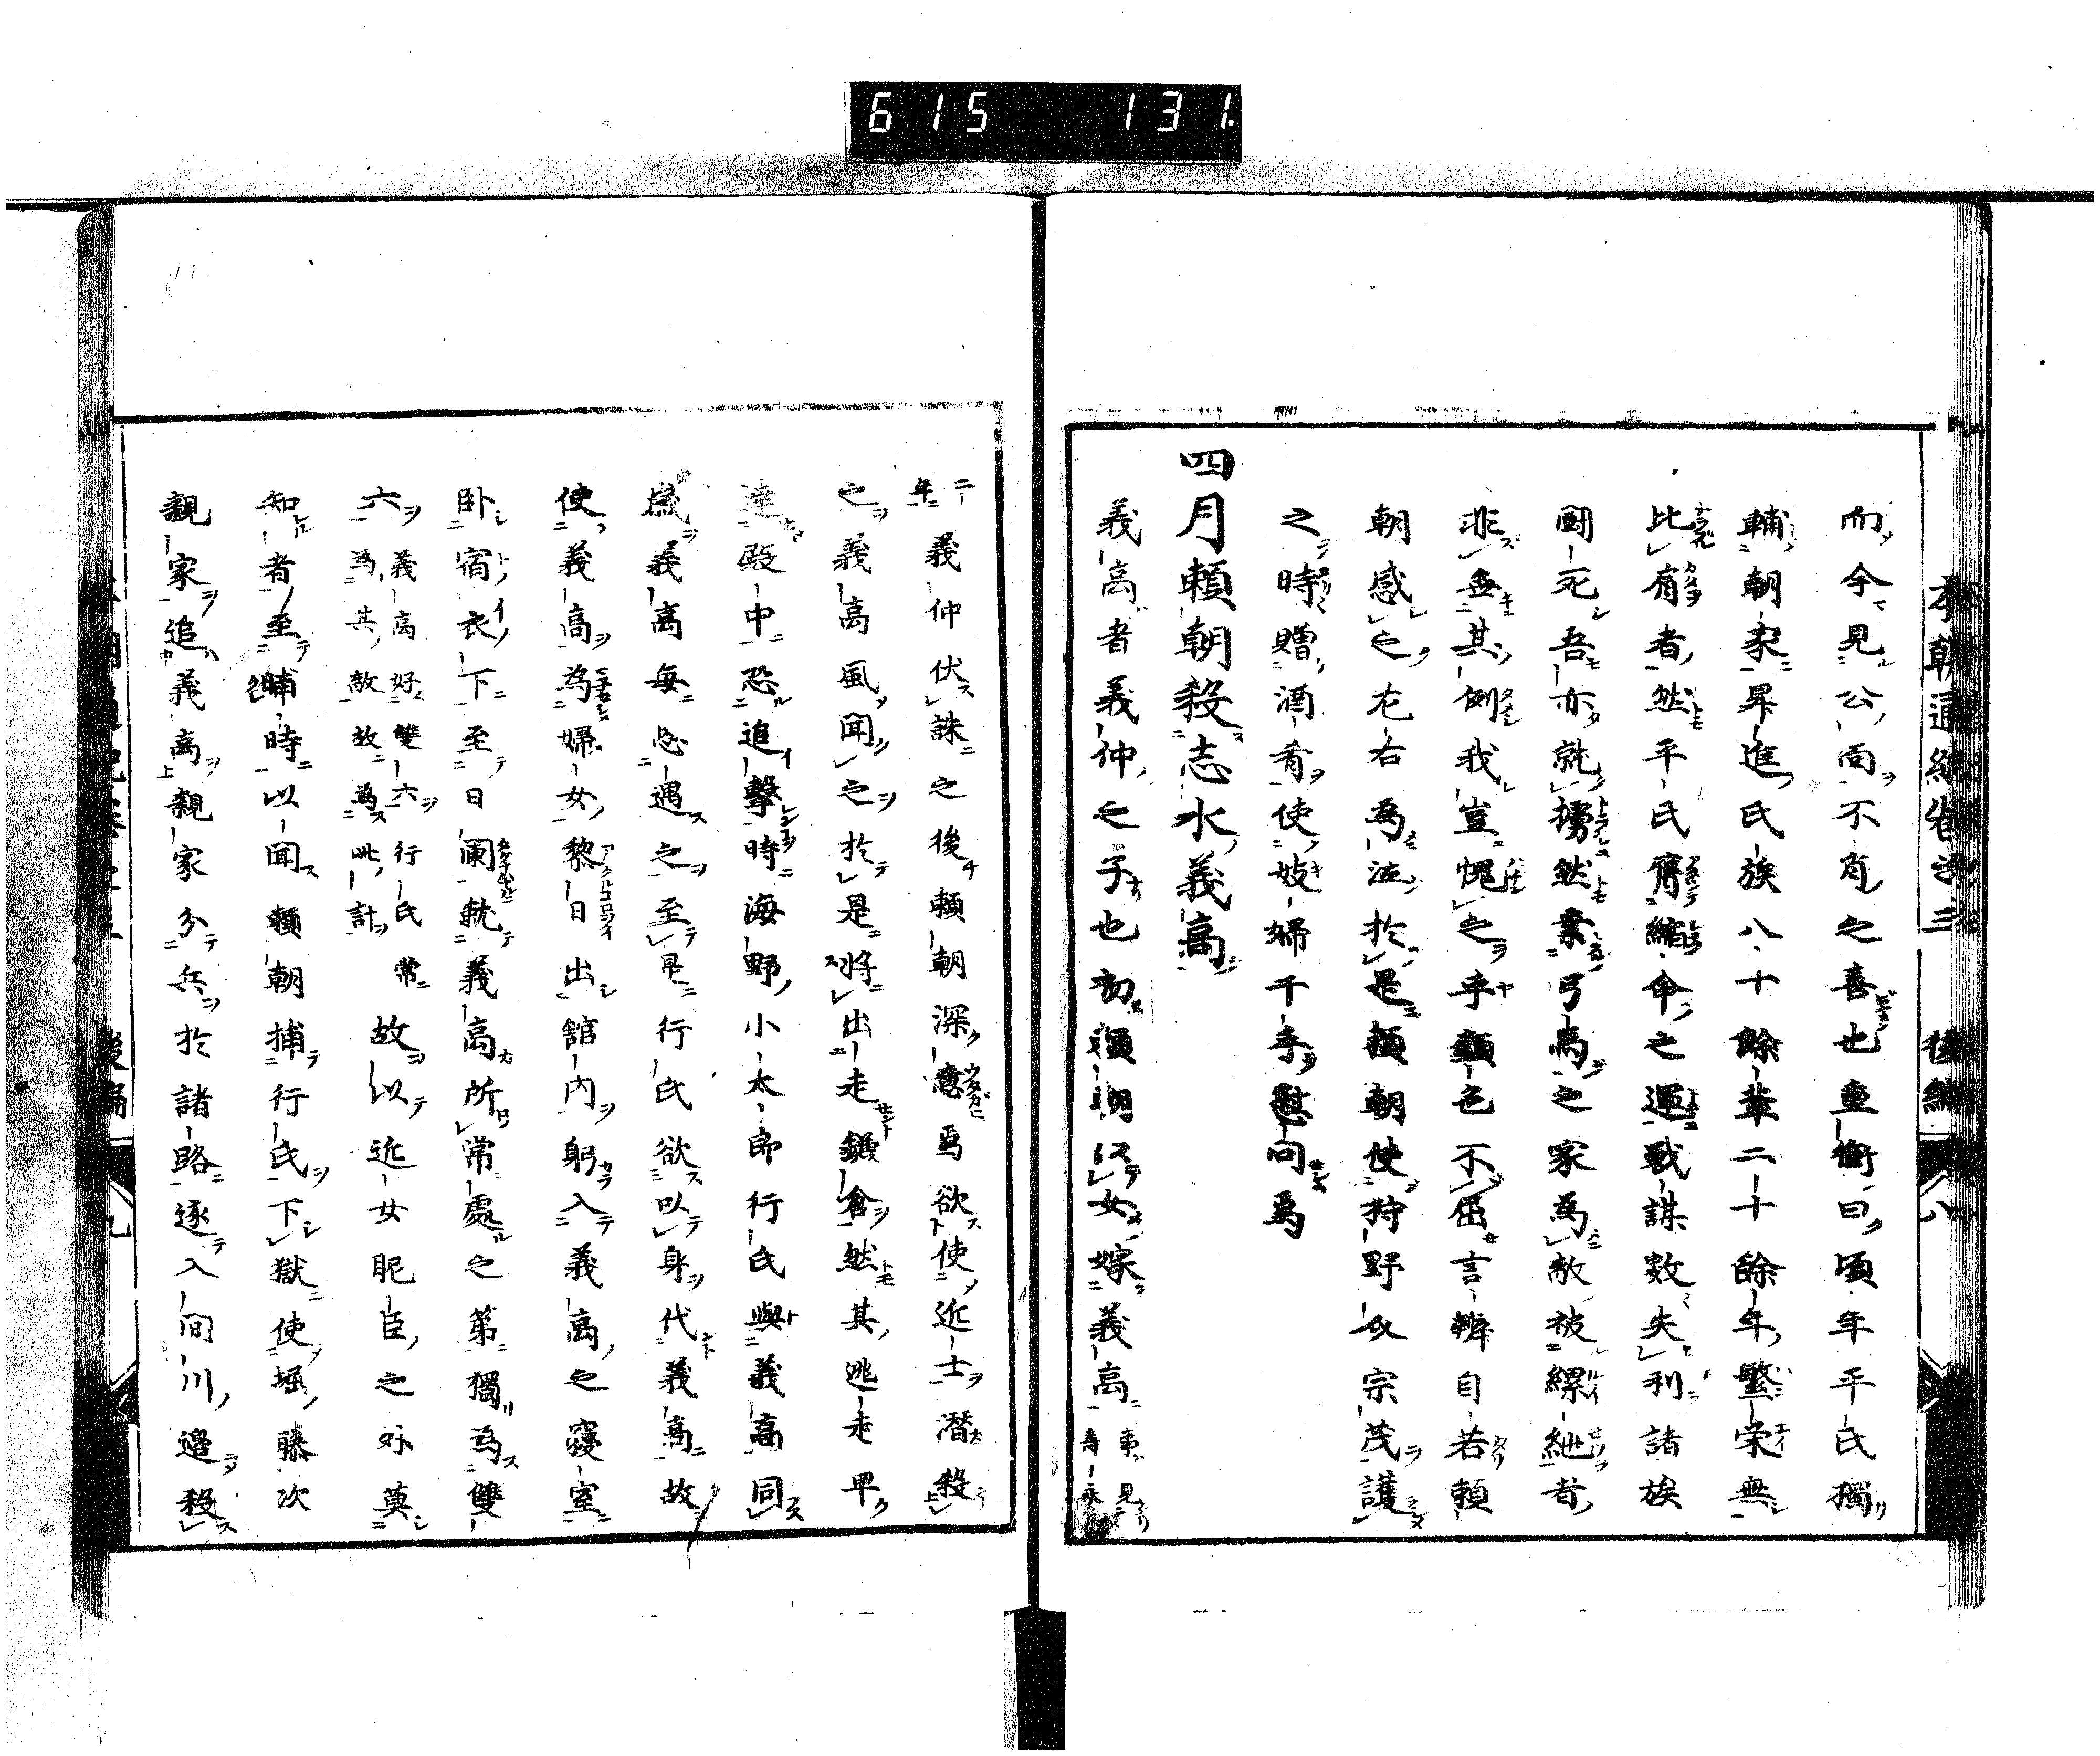 615 131
本朝通紀卷之三 後編 八
而今見公而不肖之喜也重衡曰頃年平氏獨
輔朝家昇進氏族八十餘輩二十餘年繁栄無
比肩者然平氏膺縮命之運戰謀數失利諸族
鬪死吾亦就擄然業弓馬之家為敵被縲紲者
非無其例我豈愧之乎顔色不屈言辨自若頼
朝感之左右為泣於是頼朝使狩野介宗茂護
之時贈酒肴使妓婦千手慰問焉
四月頼朝殺志水義高
義高者義仲之子也初頼朝以女嫁義高 事見壽永
二年義仲伏誅之後頼朝深意焉欲使近士潜殺
之義高風聞之於是將出走鎌倉然其逃走早
達殿中恐追擊時海野小太郎行氏與義高同
歳義高毎急遇之至是行氏欲以身代義高故
使義高為婦女黎日出舘内躬入義高之寢室
卧宿衣下至日闌就義高所常處之第獨為雙
六 義高好雙六行氏常為其敵故為此計 故以近女昵臣之外莫
知者至晡時以聞頼朝捕行氏下獄使堀藤次
親家追義高親家分兵於諸路逐入間川邉殺
後編 九